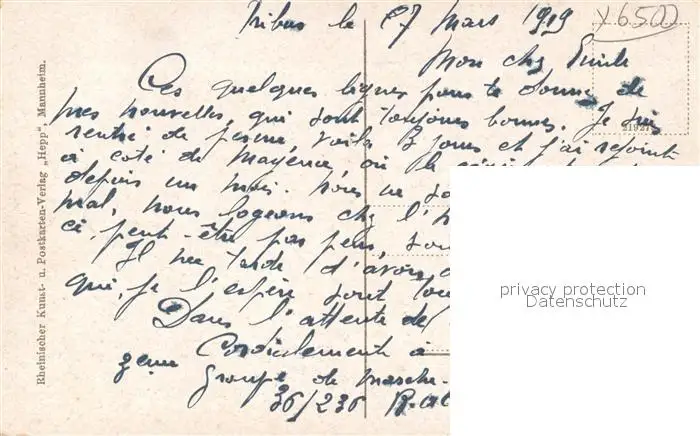 Tribur le 27 mars 1919
x6500
Mon cher Emile
Ces quelques lignes pour te donner de
mes nouvelles, qui sont toujours bonnes. Je suis
rentré de perme, voila 3 jours et j'ai rejoint
à coté de Mayence, où le
depuis un mois. Nous ne
mal, nous logeons chez l'h
ci, peut-être pas peur,
Il me tarde d'avoir
qui, je l'espère sont tou
Dans l'attente de
Cordialement à
Groupe de
36/236 R.al
21921
Rheinischer Kunst- u. Postkarten-Verlag „Hepp", Mannheim.
privacy protection
Datenschutz